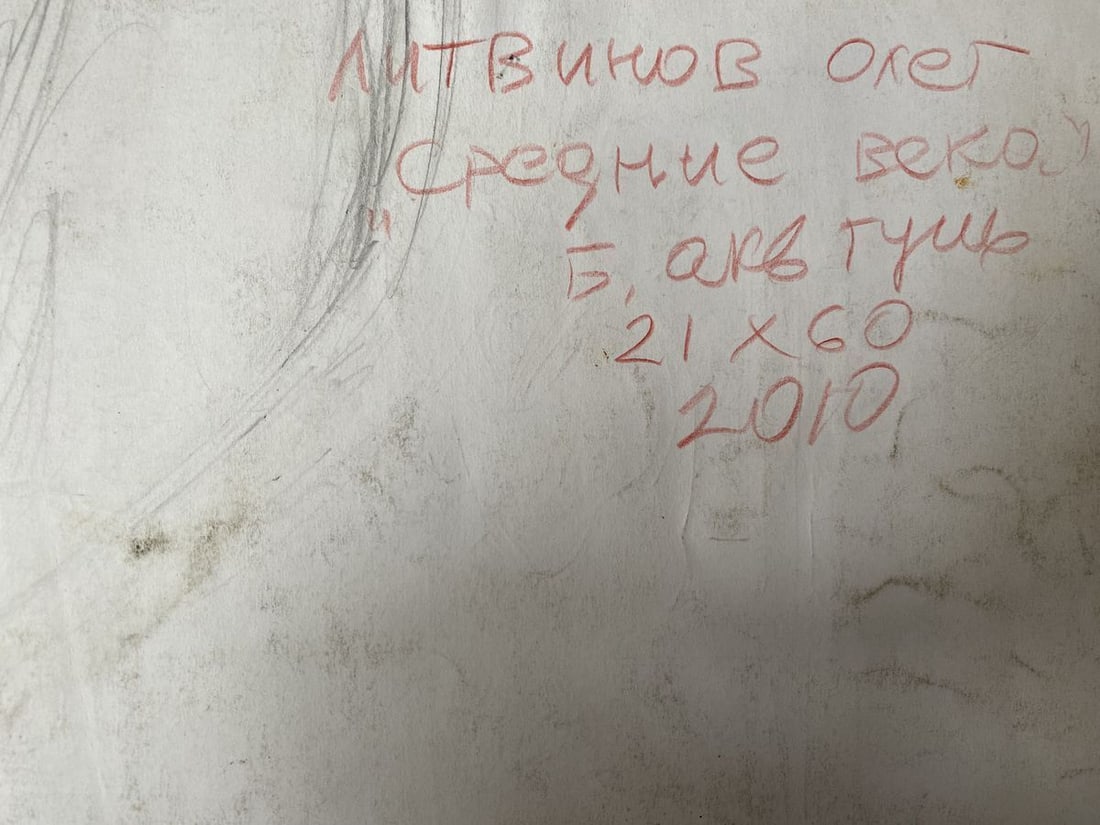 Литвинов Олег
"Средние века"
Б, акв тушь
21 х 60
2010